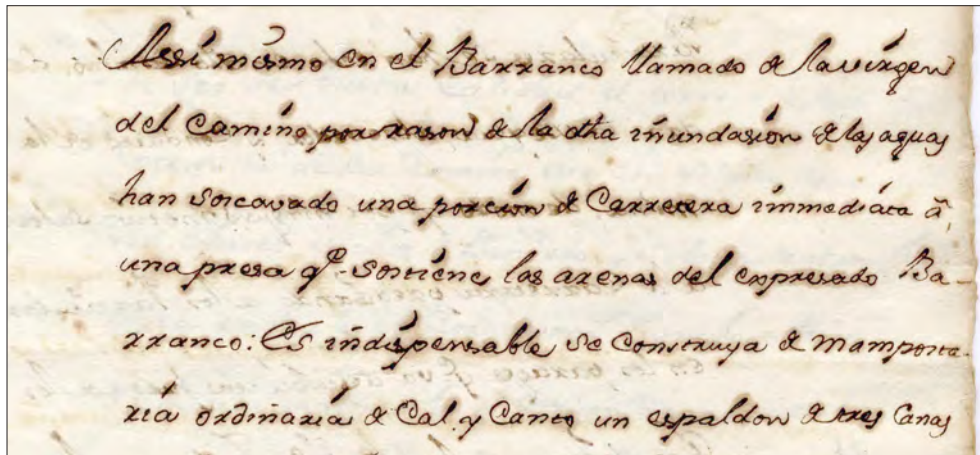 Assi mismo en el Barranco llamado de la virgen
del Camino por rason de la dha inundasion de las aguas
han socavado una porcion de Carretera immediata â
una presa qe. sostiene las arenas del expresado Ba-
rranco: Es indispensable se construya de mamposta-
ria ordinaria de Cal. y Canto un espaldon de tres Canas